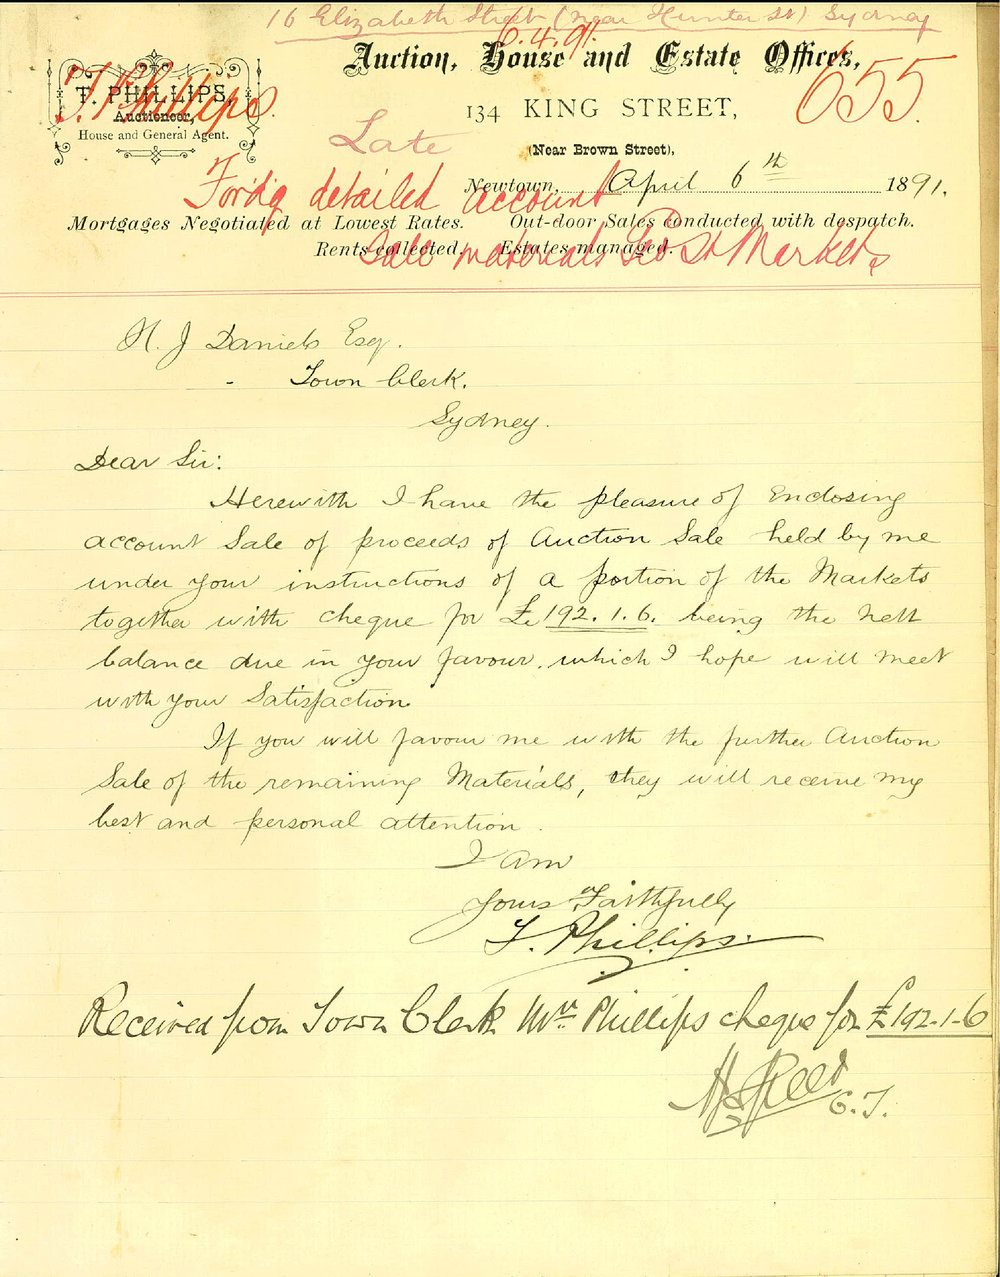 16 Elizabeth Street (near Hunter St) Sydney
6.4.91.
Auction, House and Estate Offices,
655.
T. PHILLIPS,
T. Phillips.
Auctioneer,
House and General Agent.
134 KING STREET,
Late
(Near Brown Street),
Newtown, April 6th 1891.
For'dg detailed account
Mortgages Negotiated at Lowest Rates. Out-door Sales conducted with despatch.
Rents collected. Estates managed.
Sale materials Geo St Markets
H. J Daniels Esq.
Town Clerk.
Sydney.
Dear Sir:
Herewith I have the pleasure of Enclosing
account Sale of proceeds of Auction Sale held by me
under your instructions of a portion of the Markets
together with cheque for £192.1.6. being the nett
balance due in your favour. which I hope will meet
with your Satisfaction
If you will favour me with the further Auction
Sale of the remaining Materials, they will receive my
best and personal attention.
I am
Yours Faithfully
T. Phillips.
Received from Town Clerk Mr Phillips cheque for £192-1-6
C.T.